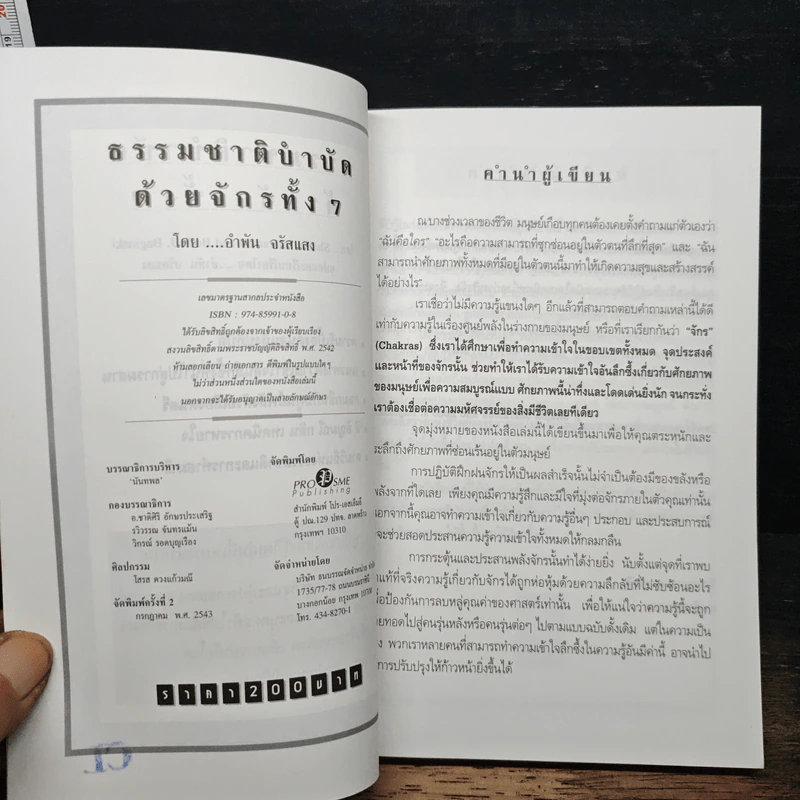 ธรรมชาติบำบัด
ด้วยจักรทั้ง ๗
โดย ....อำพัน จรัสแสง
เลขมาตรฐานสากลประจำหนังสือ
ISBN : 974-85991-0-8
ได้รับลิขสิทธิ์ถูกต้องจากเจ้าของผู้เรียบเรียง
สงวนลิขสิทธิ์ตามพระราชบัญญัติลิขสิทธิ์ พ.ศ. 2542
ห้ามลอกเลียน ถ่ายเอกสาร ตีพิมพ์ในรูปแบบใดๆ
ไม่ว่าส่วนหนึ่งส่วนใดของหนังสือเล่มนี้
นอกจากจะได้รับอนุญาตเป็นลายลักษณ์อักษร
บรรณาธิการบริหาร
'นันทพล'
กองบรรณาธิการ
อ.ชาติศิริ อักษรประเสริฐ
รวิวรรณ จันทรแม้น
วิกรณ์ รอดบุญเรือง
ศิลปกรรม
โสรส ดวงแก้วมณี
จัดพิมพ์ครั้งที่ 2
กรกฎาคม พ.ศ. 2543
จัดพิมพ์โดย
PRO SME
Publishing
สำนักพิมพ์ โปร-เอสเอ็มอี
ตู้ ปณ.129 ปทจ. ลาดพร้าว
กรุงเทพฯ 10310
จัดจำหน่ายโดย
บริษัท ธนบรรณจัดจำหน่าย
1735/77-78 ถนนบรมราชชนนี
บางกอกน้อย กรุงเทพฯ
โทร. 434-8270-1
ราคา 200 บาท
CL
คำนำผู้เขียน
ณ บางช่วงเวลาของชีวิต มนุษย์เกือบทุกคนต้องเคยตั้งคำถามแก่ตัวเองว่า
"ฉันคือใคร" "อะไรคือความสามารถที่ซุกซ่อนอยู่ในตัวตนที่ลึกที่สุด" และ "ฉัน
สามารถนำศักยภาพทั้งหมดที่มีอยู่ในตัวตนนี้มาทำให้เกิดความสุขและสร้างสรรค์
ได้อย่างไร"
เราเชื่อว่าไม่มีความรู้แขนงใดๆ อีกแล้วที่สามารถตอบคำถามเหล่านี้ได้ดี
เท่ากับความรู้ในเรื่องศูนย์พลังในร่างกายของมนุษย์ หรือที่เราเรียกกันว่า "จักร"
(Chakras) ซึ่งเราได้ศึกษาเพื่อทำความเข้าใจในขอบเขตทั้งหมด จุดประสงค์
และหน้าที่ของจักรนั้น ช่วยทำให้เราได้รับความเข้าใจอันลึกซึ้งเกี่ยวกับศักยภาพ
ของมนุษย์เพื่อความสมบูรณ์แบบ ศักยภาพนี้น่าทึ่งและโดดเด่นยิ่งนัก จนกระทั่ง
เราต้องเชื่อต่อความมหัศจรรย์ของสิ่งมีชีวิตเลยทีเดียว
จุดมุ่งหมายของหนังสือเล่มนี้ได้เขียนขึ้นมาเพื่อให้คุณตระหนักและ
ระลึกถึงศักยภาพที่ซ่อนเร้นอยู่ในตัวมนุษย์
การปฏิบัติฝึกฝนจักรให้เป็นผลสำเร็จนั้นไม่จำเป็นต้องมีของขลังหรือ
พลังจากที่ใดเลย เพียงคุณมีความรู้สึกและมีใจที่มุ่งต่อจักรภายในตัวคุณเท่านั้น
นอกจากนี้คุณอาจทำความเข้าใจเกี่ยวกับความรู้อื่นๆ ประกอบ และประสบการณ์
จะช่วยสอดประสานความรู้ความเข้าใจทั้งหมดให้กลมกลืน
การกระตุ้นและประสานพลังจักรนั้นทำได้ง่ายยิ่ง นับตั้งแต่จุดที่เราพบ
แท้ที่จริงความรู้เกี่ยวกับจักรได้ถูกห่อหุ้มด้วยความลึกลับที่ไม่ซับซ้อนอะไร
เพื่อป้องกันการลบหลู่คุณค่าของศาสตร์เท่านั้น เพื่อให้แน่ใจว่าความรู้นี้จะถูก
ถ่ายทอดไปสู่คนรุ่นหลังหรือคนรุ่นต่อๆ ไปตามแบบฉบับดั้งเดิม แต่ในความเป็น
พวกเราหลายคนที่สามารถทำความเข้าใจลึกซึ้งในความรู้อันมีค่านี้ อาจนำไป
การปรับปรุงให้ก้าวหน้ายิ่งขึ้นได้